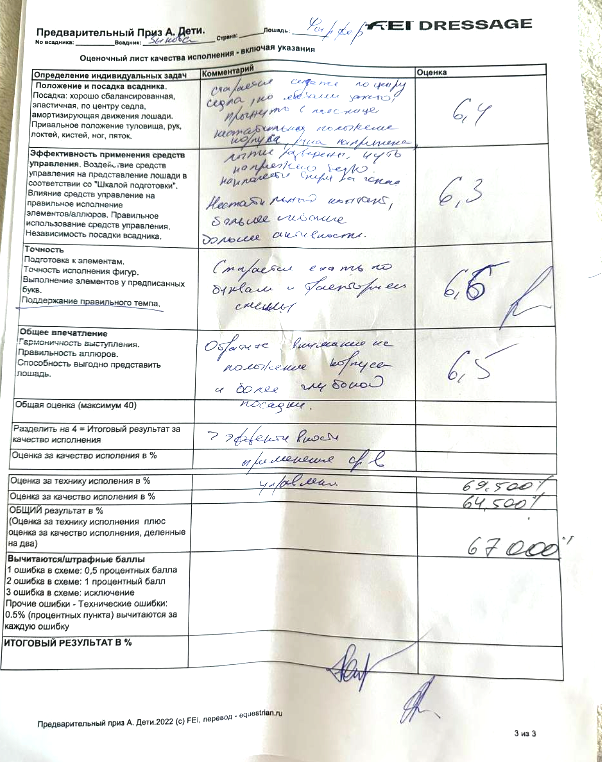 Предварительный Приз А. Дети.
No всадника: Всадник: Страна: Лошадь: Фарфор
FEI DRESSAGE
Оценочный лист качества исполнения - включая указания
Определение индивидуальных задач
Комментарий
Оценка
Положение и посадка всадника.
Посадка: хорошо сбалансированная,
эластичная, по центру седла,
амортизирующая движения лошади.
Привальное положение туловища, рук,
локтей, кистей, ног, пяток.
старается сидеть по центру
седла, но
положение
корпуса рука напряжена
6,4
Эффективность применения средств
управления. Воздействие средств
управления на представление лошади в
соответствии со "Шкалой подготовки".
Влияние средств управления на
правильное исполнение
элементов/аллюров. Правильное
использование средств управления,
Независимость посадки всадника.
чуть
Нестабильный контакт,
больше
больше активности.
6,3
Точность
Подготовка к элементам.
Точность исполнения фигур.
Выполнение элементов у предписанных
букв.
Поддержание правильного темпа.
Старается ехать по
буквам и
схемы
6,6
Общее впечатление
Гармоничность выступления.
Правильность аллюров.
Способность выгодно представить
лошадь.
Обратите внимание на
положение корпуса
и более глубокой
посадки.
6,5
Общая оценка (максимум 40)
Разделить на 4 = Итоговый результат за
качество исполнения
> эффективности
Оценка за качество исполения в %
применения ср-в
Оценка за технику исполения в %
управления
69,500%
Оценка за качество исполения в %
64,500%
ОБЩИЙ результат в %
(Оценка за технику исполнения плюс
оценка за качество исполнения, деленные
на два)
67 000%
Вычитаются/штрафные баллы
1 ошибка в схеме: 0,5 процентных балла
2 ошибка в схеме: 1 процентный балл
3 ошибка в схеме: исключение
Прочие ошибки - Технические ошибки:
0.5% (процентных пункта) вычитаются за
каждую ошибку
ИТОГОВЫЙ РЕЗУЛЬТАТ В %
Предварительный приз А. Дети.2022 (c) FEI, перевод - equestrian.ru
3 из 3